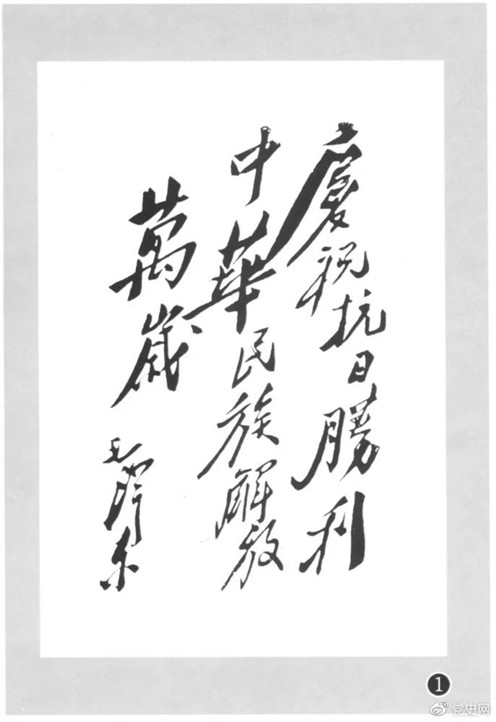 慶祝抗日勝利
中華民族解放
萬歲
毛澤东
1
@党史网